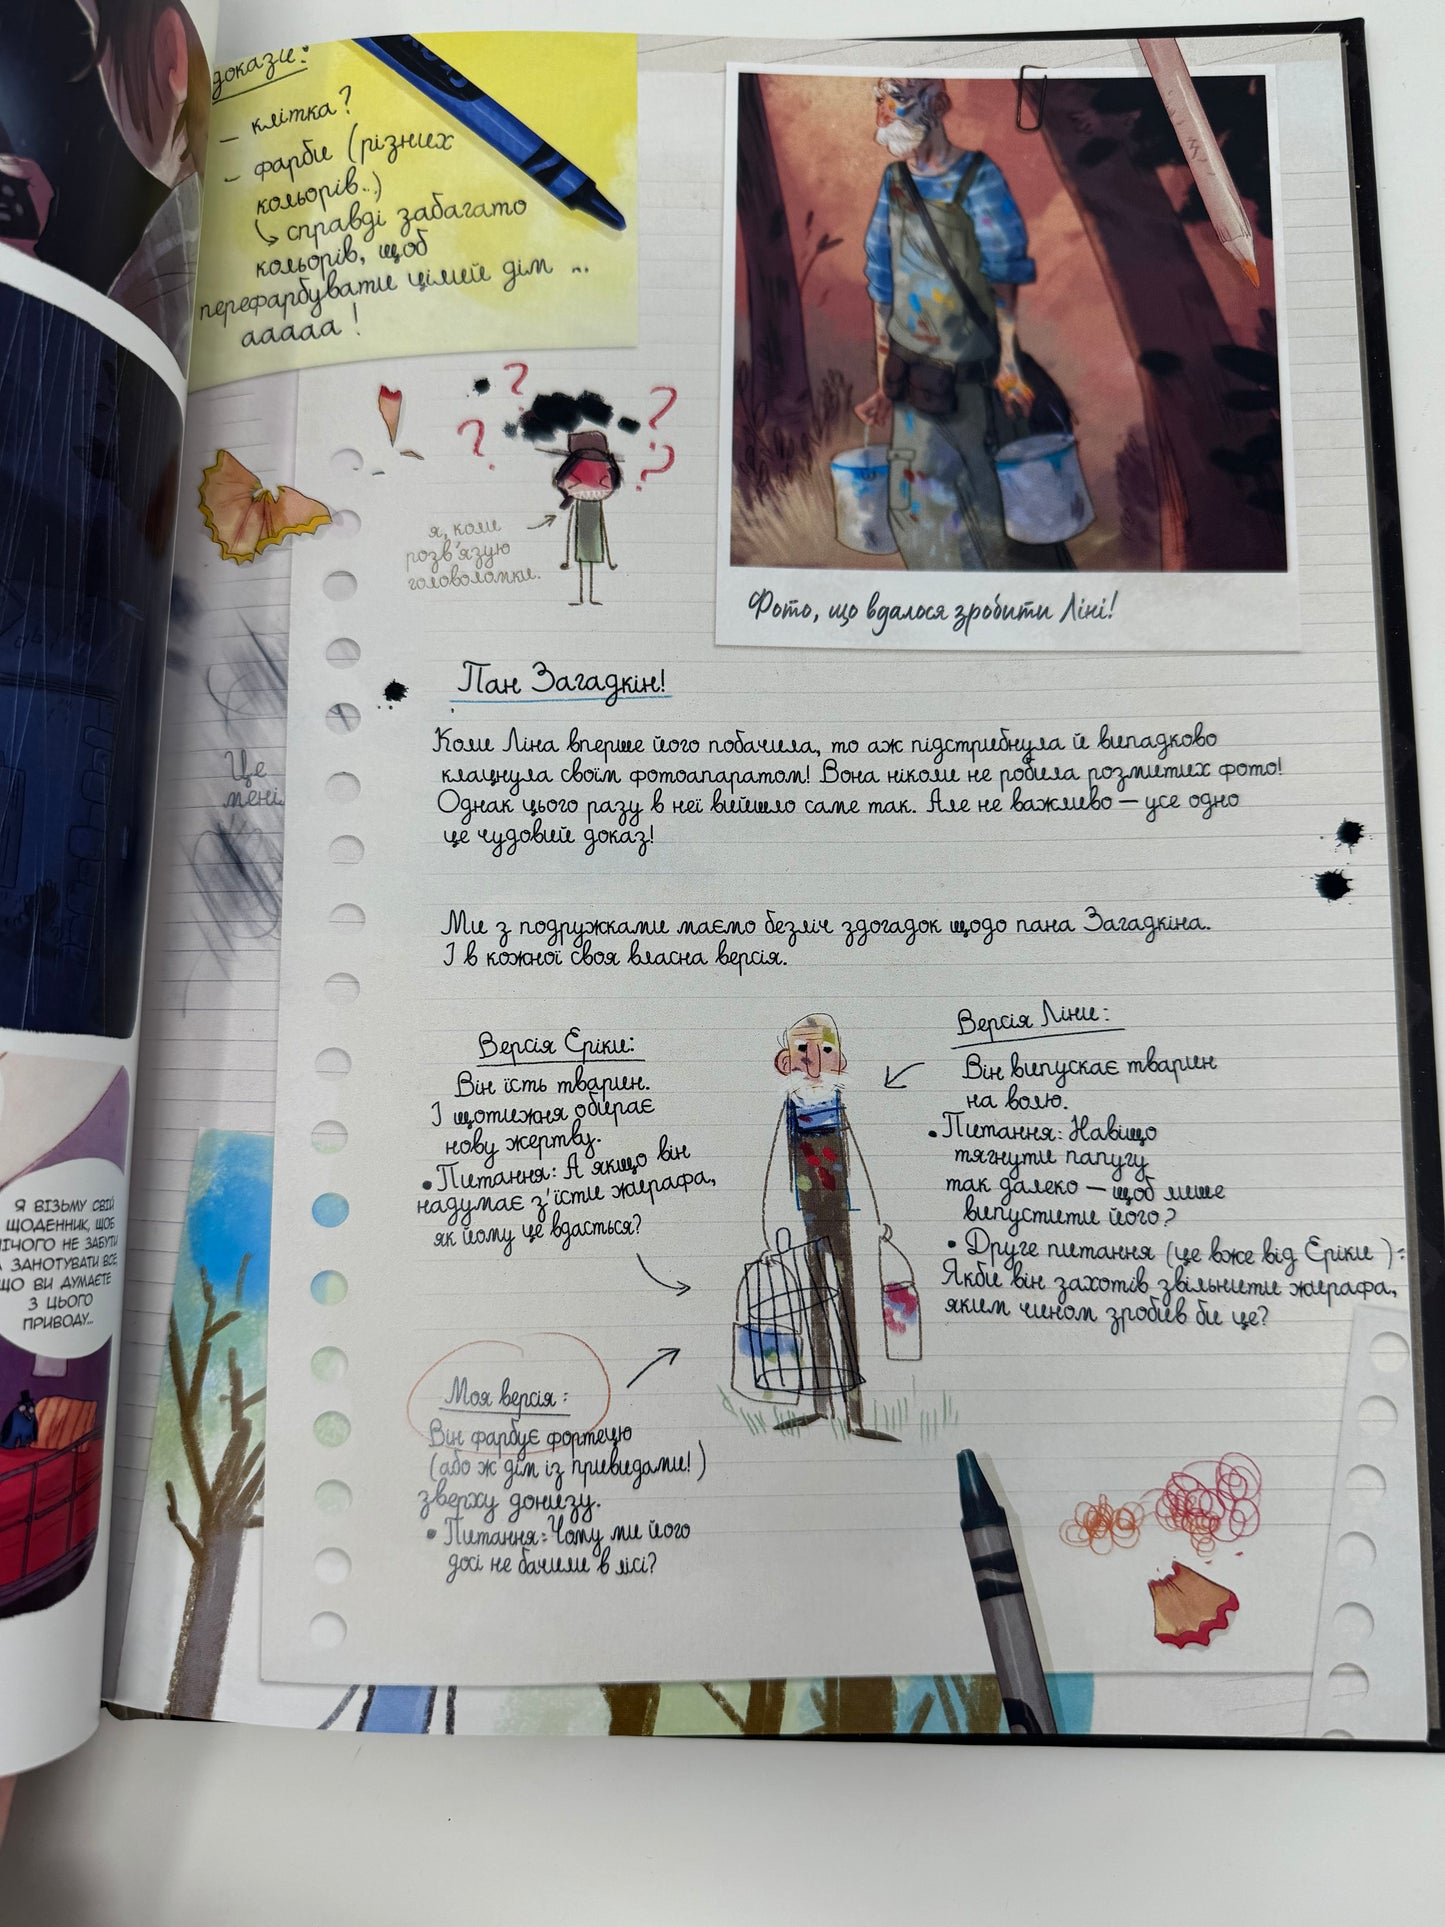 докази:
– клітка?
– фарби (різних
кольорів..)
справді забагато
кольорів, щоб
перефарбувати цілий дім ...
ааааа!
я, коли
розв'язую
головоломки.
Фото, що вдалося зробити Ліні!
Пан Загадкін!
Коли Ліна вперше його побачила, то аж підстрибнула й випадково
клацнула своїм фотоапаратом! Вона ніколи не робила розмитих фото!
Однак цього разу в неї вийшло саме так. Але не важливо – усе одно
це чудовий доказ!
Це
мені
Ми з подружками маємо безліч здогадок щодо пана Загадкіна.
І в кожної своя власна версія.
Версія Еріки:
Він їсть тварин.
І щотижня обирає
нову жертву.
• Питання: А якщо він
надумає з'їсти жирафа,
як йому це вдасться?
Версія Ліни:
Він випускає тварин
на волю.
• Питання: Навіщо
тягнути папугу
так далеко – щоб лише
випустити його?
• Друге питання (це вже від Еріки ):
Якби він захотів звільнити жирафа,
яким чином зробив би це?
Моя версія:
Він фарбує фортецю
(або ж дім із привидами!)
зверху донизу.
• Питання: Чому ми його
досі не бачили в лісі?
Я ВІЗЬМУ СВІЙ
ЩОДЕННИК, ЩОБ
НІЧОГО НЕ ЗАБУТИ
ЗАНОТУВАТИ ВСЕ,
ЩО ВИ ДУМАЄТЕ
З ЦЬОГО
ПРИВОДУ...